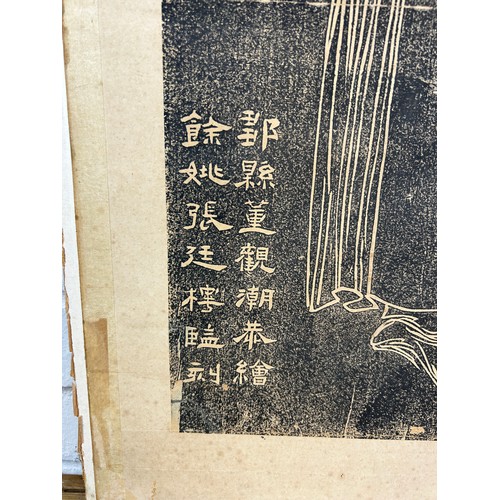 鄞縣董觀潮恭繪
餘姚張廷樗臨刻